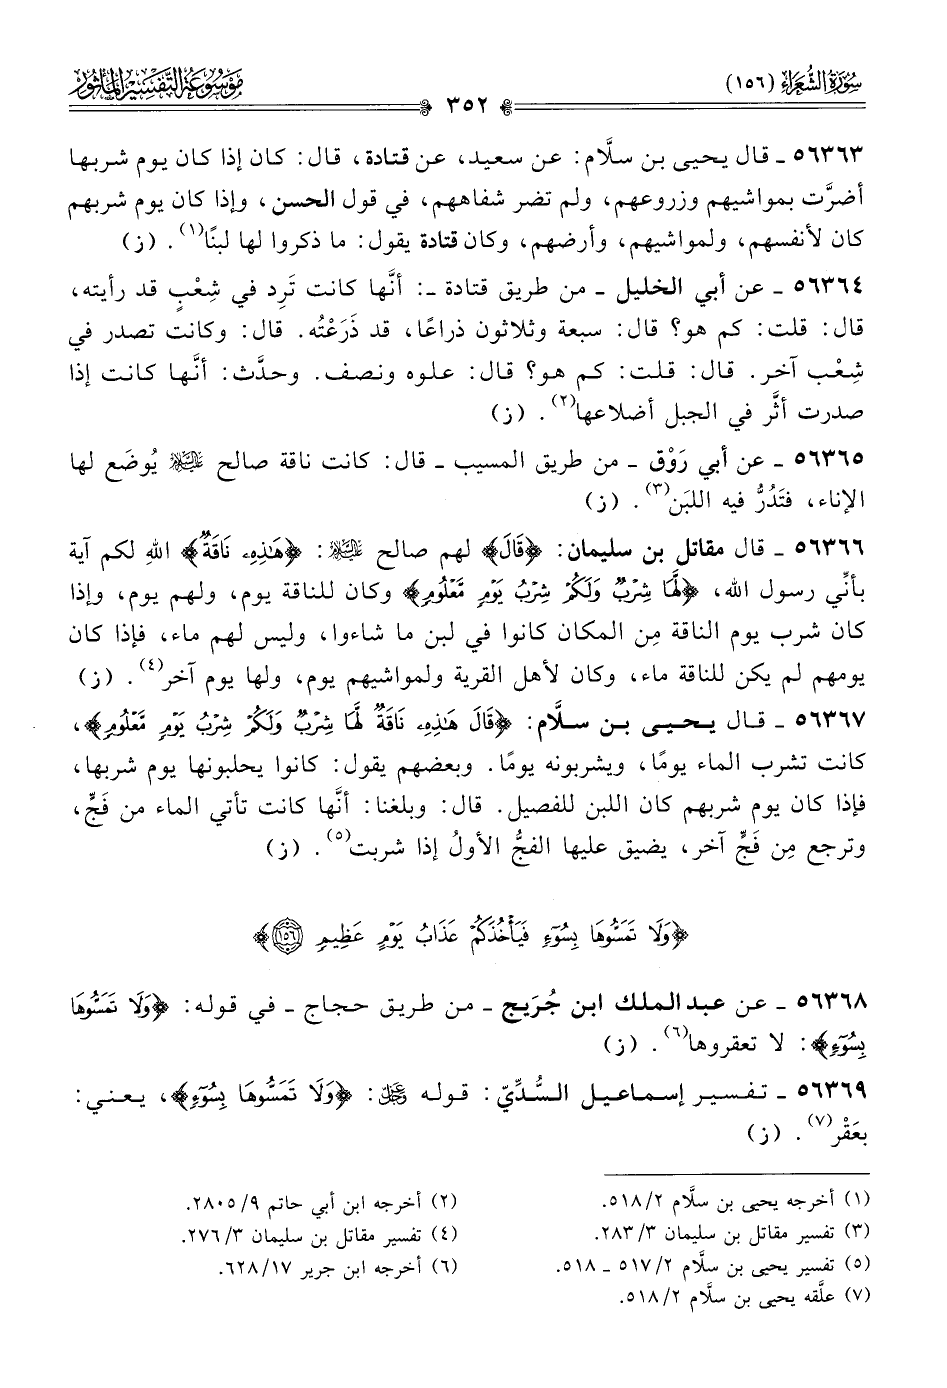 سُورَةُ الشُّعَرَاءِ (١٥٦)
٣٥٢
مَوْسُوعَةُ التَّفْسِيرِ المَأْثُورِ
٥٦٣٦٣ ـ قال يحيى بن سلَّام: عن سعيد، عن قتادة، قال: كان إذا كان يوم شربها
أضرَّت بمواشيهم وزروعهم، ولم تضر شفاههم، في قول الحسن، وإذا كان يوم شربهم
كان لأنفسهم، ولمواشيهم، وأرضهم، وكان قتادة يقول: ما ذكروا لها لبنًا(١). (ز)
٥٦٣٦٤ ـ عن أبي الخليل ـ من طريق قتادة ـ: أنَّها كانت تَرِد في شِعْبٍ قد رأيته،
قال: قلت: كم هو؟ قال: سبعة وثلاثون ذراعًا، قد ذَرَعْتُه. قال: وكانت تصدر في
شِعْب آخر. قال: قلت: كم هو؟ قال: علوه ونصف. وحدَّث: أنَّها كانت إذا
صدرت أثَّر في الجبل أضلاعها(٢). (ز)
٥٦٣٦٥ ـ عن أبي رَوْق ـ من طريق المسيب ـ قال: كانت ناقة صالح عليه السلام يُوضَع لها
الإناء، فتَدُرُّ فيه اللبَن(٣). (ز)
٥٦٣٦٦ ـ قال مقاتل بن سليمان: ﴿قَالَ﴾ لهم صالح عليه السلام: ﴿هَٰذِهِۦ نَاقَةٌ﴾ اللهِ لكم آية
بأنِّي رسول الله، ﴿لَّهَا شِرْبٌ وَلَكُمْ شِرْبُ يَوْمٍ مَّعْلُومٍ﴾ وكان للناقة يوم، ولهم يوم، وإذا
كان شرب يوم الناقة مِن المكان كانوا في لبن ما شاءوا، وليس لهم ماء، فإذا كان
يومهم لم يكن للناقة ماء، وكان لأهل القرية ولمواشيهم يوم، ولها يوم آخر(٤). (ز)
٥٦٣٦٧ ـ قال يحيى بن سلَّام: ﴿قَالَ هَٰذِهِۦ نَاقَةٌ لَّهَا شِرْبٌ وَلَكُمْ شِرْبُ يَوْمٍ مَّعْلُومٍ﴾،
كانت تشرب الماء يومًا، ويشربونه يومًا. وبعضهم يقول: كانوا يحلبونها يوم شربها،
فإذا كان يوم شربهم كان اللبن للفصيل. قال: وبلغنا: أنَّها كانت تأتي الماء من فَجٍّ،
وترجع مِن فَجٍّ آخر، يضيق عليها الفجُّ الأولُ إذا شربت(٥). (ز)
﴿وَلَا تَمَسُّوهَا بِسُوٓءٍ فَيَأْخُذَكُمْ عَذَابُ يَوْمٍ عَظِيمٍ ١٥٦﴾
٥٦٣٦٨ ـ عن عبد الملك ابن جُرَيج ـ من طريق حجاج ـ في قوله: ﴿وَلَا تَمَسُّوهَا
بِسُوٓءٍ﴾: لا تعقروها(٦). (ز)
٥٦٣٦٩ ـ تفسير إسماعيل السُّدِّيّ: قوله عز وجل: ﴿وَلَا تَمَسُّوهَا بِسُوٓءٍ﴾، يعني:
بعَقْر(٧). (ز)
(١) أخرجه يحيى بن سلَّام ٢/٥١٨.
(٢) أخرجه ابن أبي حاتم ٩/٢٨٠٥.
(٣) تفسير مقاتل بن سليمان ٣/٢٨٣.
(٤) تفسير مقاتل بن سليمان ٣/٢٧٦.
(٥) تفسير يحيى بن سلَّام ٢/٥١٧ ـ ٥١٨.
(٦) أخرجه ابن جرير ١٧/٦٢٨.
(٧) علَّقه يحيى بن سلَّام ٢/٥١٨.